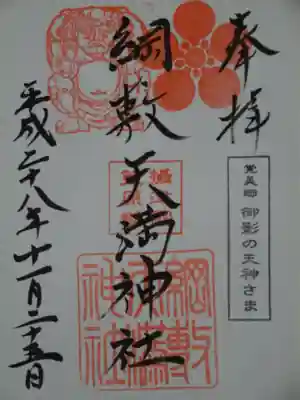 奉拝
覚美郷 御影の天神さま
綱敷天満神社
綱敷
天満
神社
平成二十八年十一月二十五日